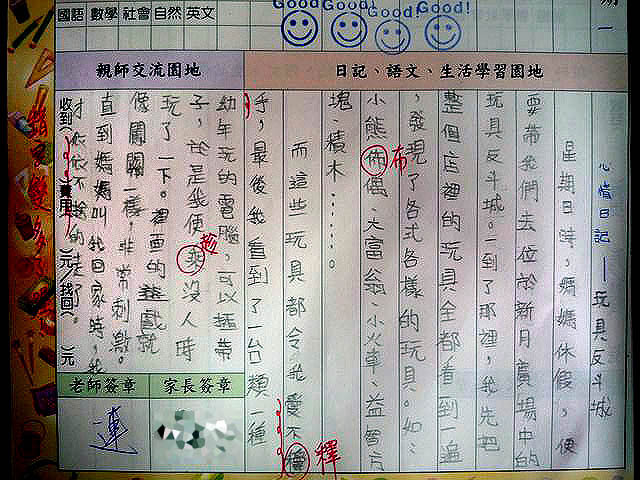 國語 數學 社會 自然 英文
Good! Good! Good! Good!
一
親師交流園地
日記、語文、生活學習園地
心情日記—玩具反斗城
星期日時,媽媽休假,便
要帶我們去位於新月廣場中的
玩具反斗城。一到了那裡,我先把
整個店裡的玩具全都看到一遍
,發現了各式各樣的玩具。如:
小熊佈偶、大富翁、小火車、益智方
布
塊、積木……。
而這些玩具都令我愛不
釋
手,最後我看到了一台類一種
幼年玩的電腦,可以插帶
子,於是我便乘沒人時
趁
玩了一下。裡面的遊戲就
像闖關一樣,非常刺激。
直到媽媽叫我回家時,我
才依依不捨的走了。
收到( )費用( )元/找回( )元
老師簽章
家長簽章
連